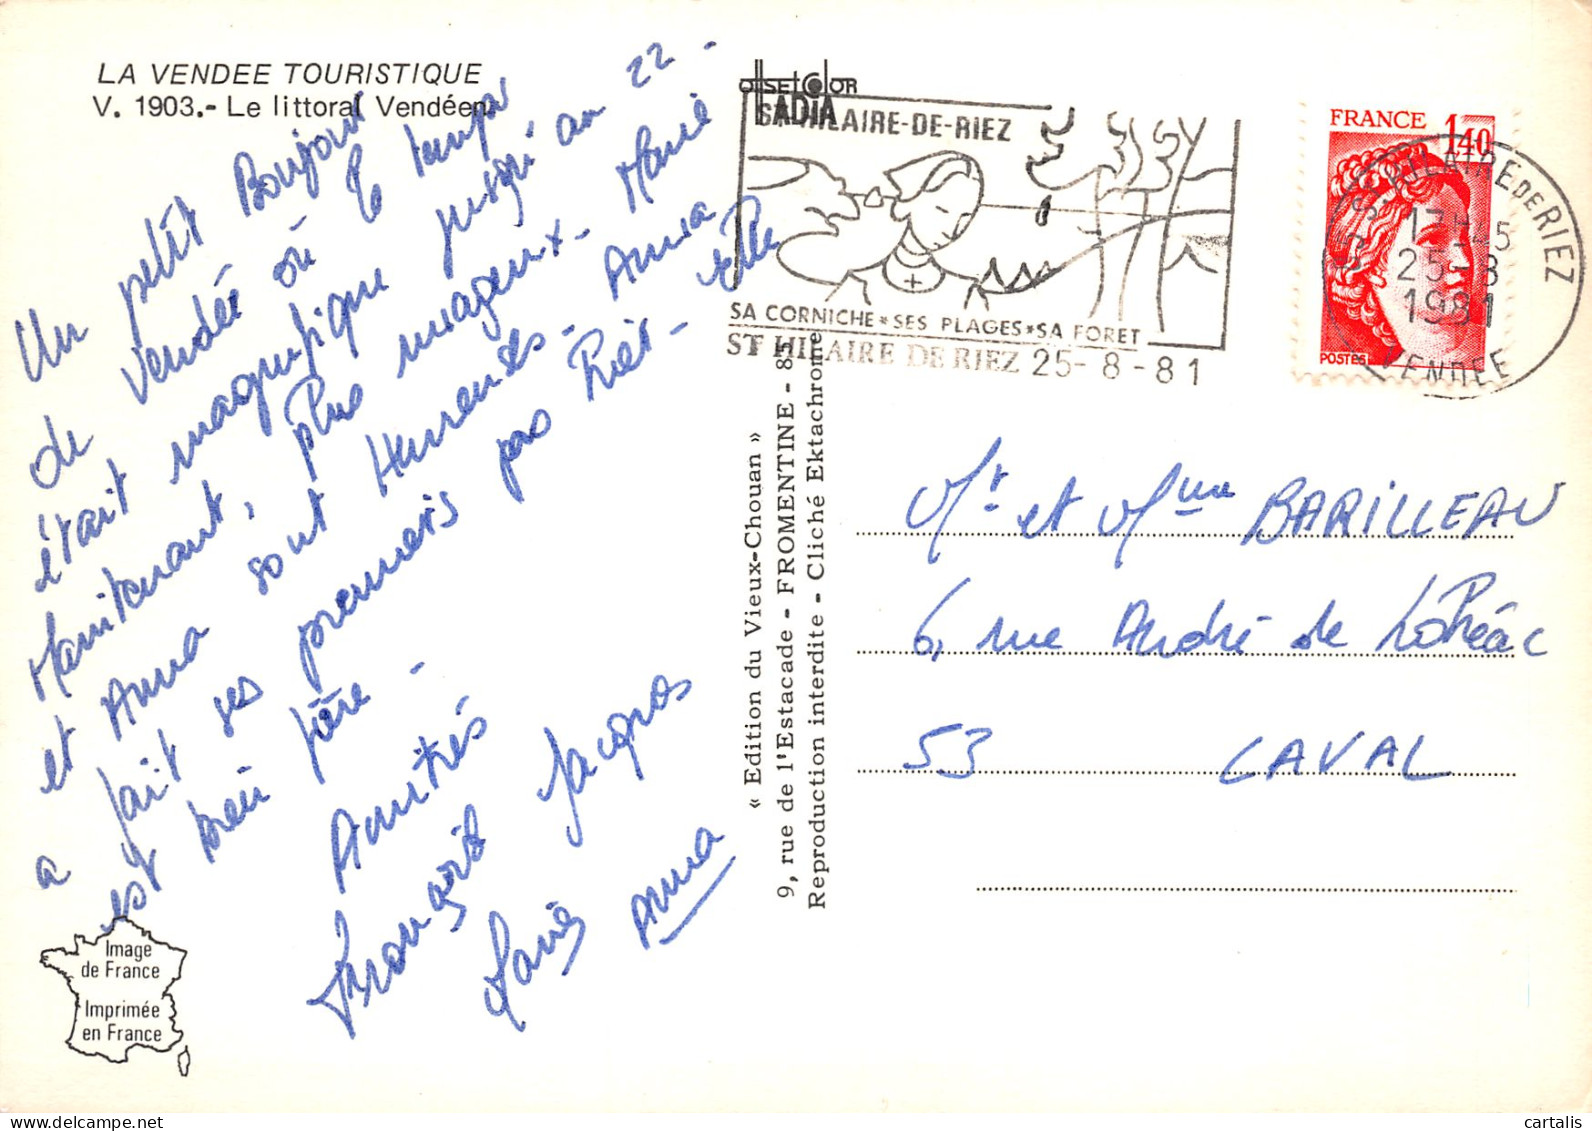 LA VENDEE TOURISTIQUE
V. 1903.- Le littoral Vendéen
Un petit Bonjour
de Vendée où le temps
était magnifique jusqu'au 22 -
Maintenant, plus nuageux. Marie
et Anna sont Heureuses. Anna
a fait ses premiers pas hier - elle
est bien fière -
Amitiés
Françoise Jacques
Marie Anna
Image
de France
Imprimée
en France
« Edition du Vieux-Chouan »
9, rue de l'Estacade - FROMENTINE - 85
Reproduction interdite - Cliché Ektachrome
offset color
HADIA
ST HILAIRE-DE-RIEZ
SA CORNICHE*SES PLAGES*SA FORET
ST HILAIRE DE RIEZ 25-8-81
FRANCE 1,40
POSTES
ST HILAIRE DE RIEZ
17H45
25-8
1981
VENDEE
Mr et Mme BARILLEAU
6, rue André de Lohéac
53 LAVAL
cartalis